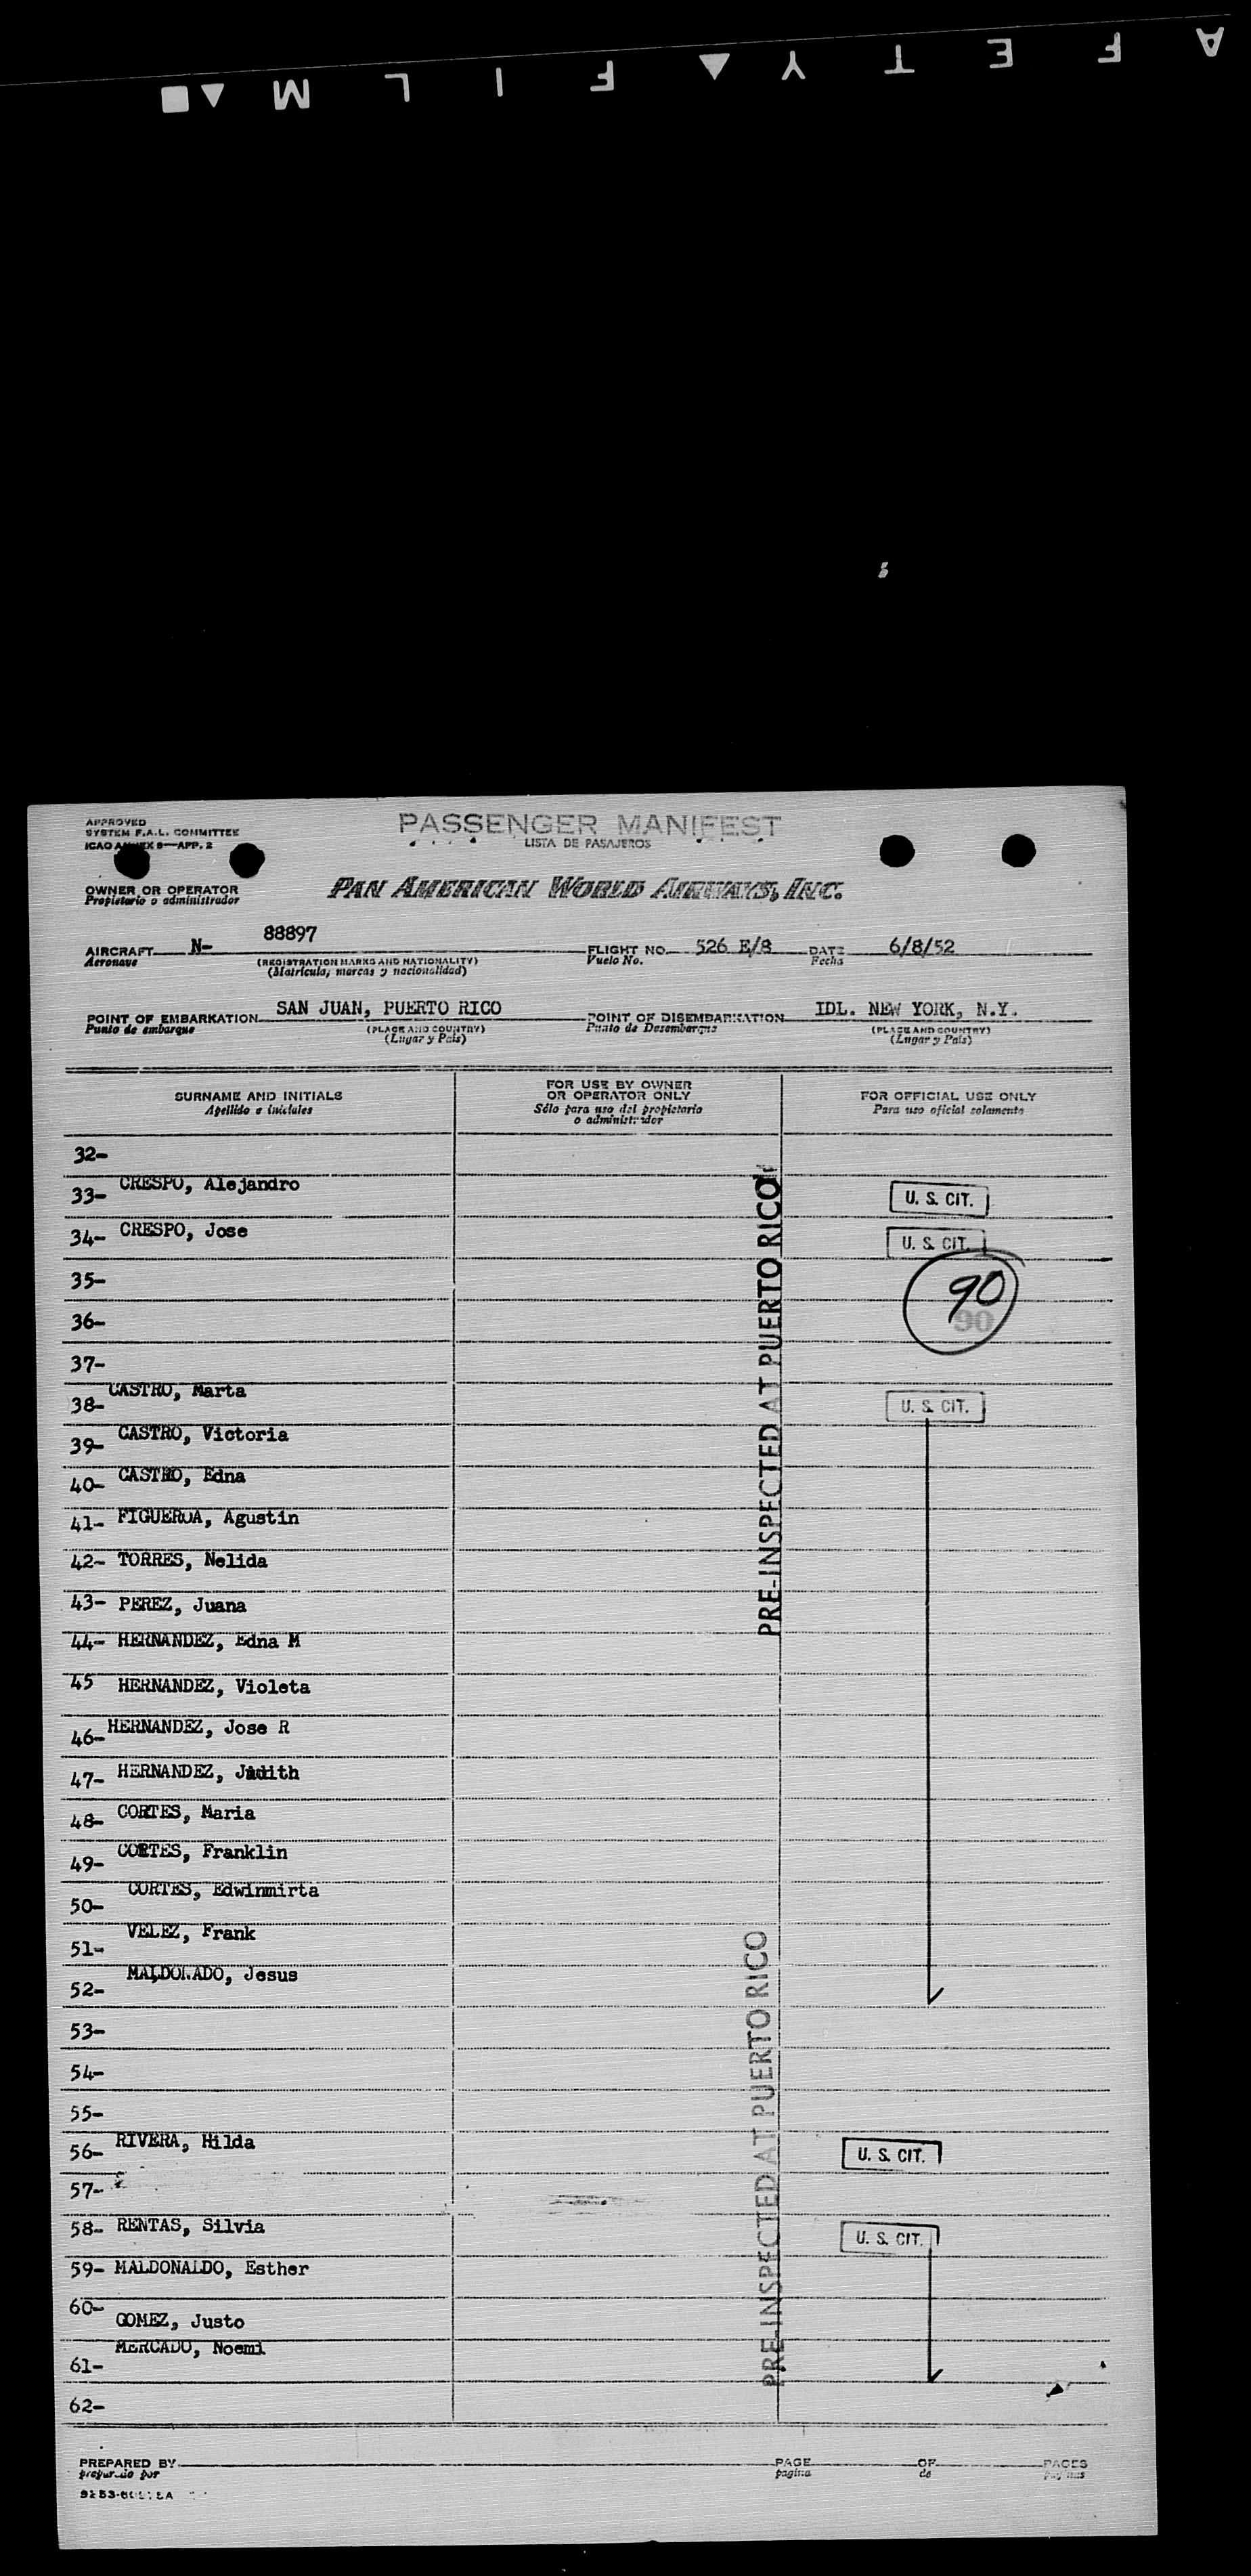 SAFETY FILM
APPROVED
SYSTEM F.A.L. COMMITTEE
ICAO ANNEX 9—APP. 2
PASSENGER MANIFEST
LISTA DE PASAJEROS
OWNER OR OPERATOR
Propietario o administrador
PAN AMERICAN WORLD AIRWAYS, INC.
AIRCRAFT N- 88897 FLIGHT NO. 526 E/8 DATE 6/8/52
Aeronave (REGISTRATION MARKS AND NATIONALITY) Vuelo No. Fecha
(Matrícula, marcas y nacionalidad)
POINT OF EMBARKATION SAN JUAN, PUERTO RICO POINT OF DISEMBARKATION IDL. NEW YORK, N.Y.
Punto de embarque (PLACE AND COUNTRY) Punto de Desembarque (PLACE AND COUNTRY)
(Lugar y País) (Lugar y País)
SURNAME AND INITIALS
Apellido e iniciales
FOR USE BY OWNER
OR OPERATOR ONLY
Sólo para uso del propietario
o administrador
FOR OFFICIAL USE ONLY
Para uso oficial solamente
32-
33- CRESPO, Alejandro U. S. CIT.
34- CRESPO, Jose U. S. CIT.
35- 90
36- 90
37-
38- CASTRO, Marta U. S. CIT.
39- CASTRO, Victoria
40- CASTRO, Edna
41- FIGUEROA, Agustin
42- TORRES, Nelida
43- PEREZ, Juana
44- HERNANDEZ, Edna M
45 HERNANDEZ, Violeta
46- HERNANDEZ, Jose R
47- HERNANDEZ, Judith
48- CORTES, Maria
49- CORTES, Franklin
50- CORTES, Edwinmirta
51- VELEZ, Frank
52- MALDONADO, Jesus
53-
54-
55-
56- RIVERA, Hilda U. S. CIT.
57-
58- RENTAS, Silvia U. S. CIT.
59- MALDONALDO, Esther
60- GOMEZ, Justo
61- MERCADO, Noemi
62-
PRE-INSPECTED AT PUERTO RICO
PRE-INSPECTED AT PUERTO RICO
PREPARED BY PAGE OF PAGES
preparado por pagina de paginas